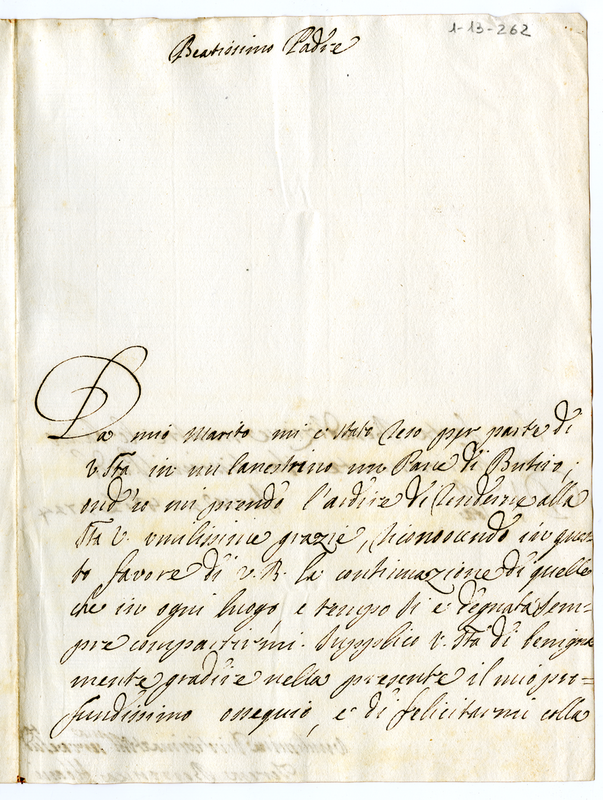 1-13-262
Beatissimo Padre
Da mio Marito mi è stato reso per parte di
V. Sta in un canestrino un Pane di Butiro;
ond'io mi prendo l'ardire di renderne alla
Sta V. umilissime grazie, riconoscendo in ques=
to favore di V. B. la continuazione di quelle
che in ogni luogo e tempo si è degnata sem=
pre compartirmi. Supplico V. Sta di benigna
mente gradire nella presente il mio pro=
fundissimo ossequio, e di felicitarmi colla